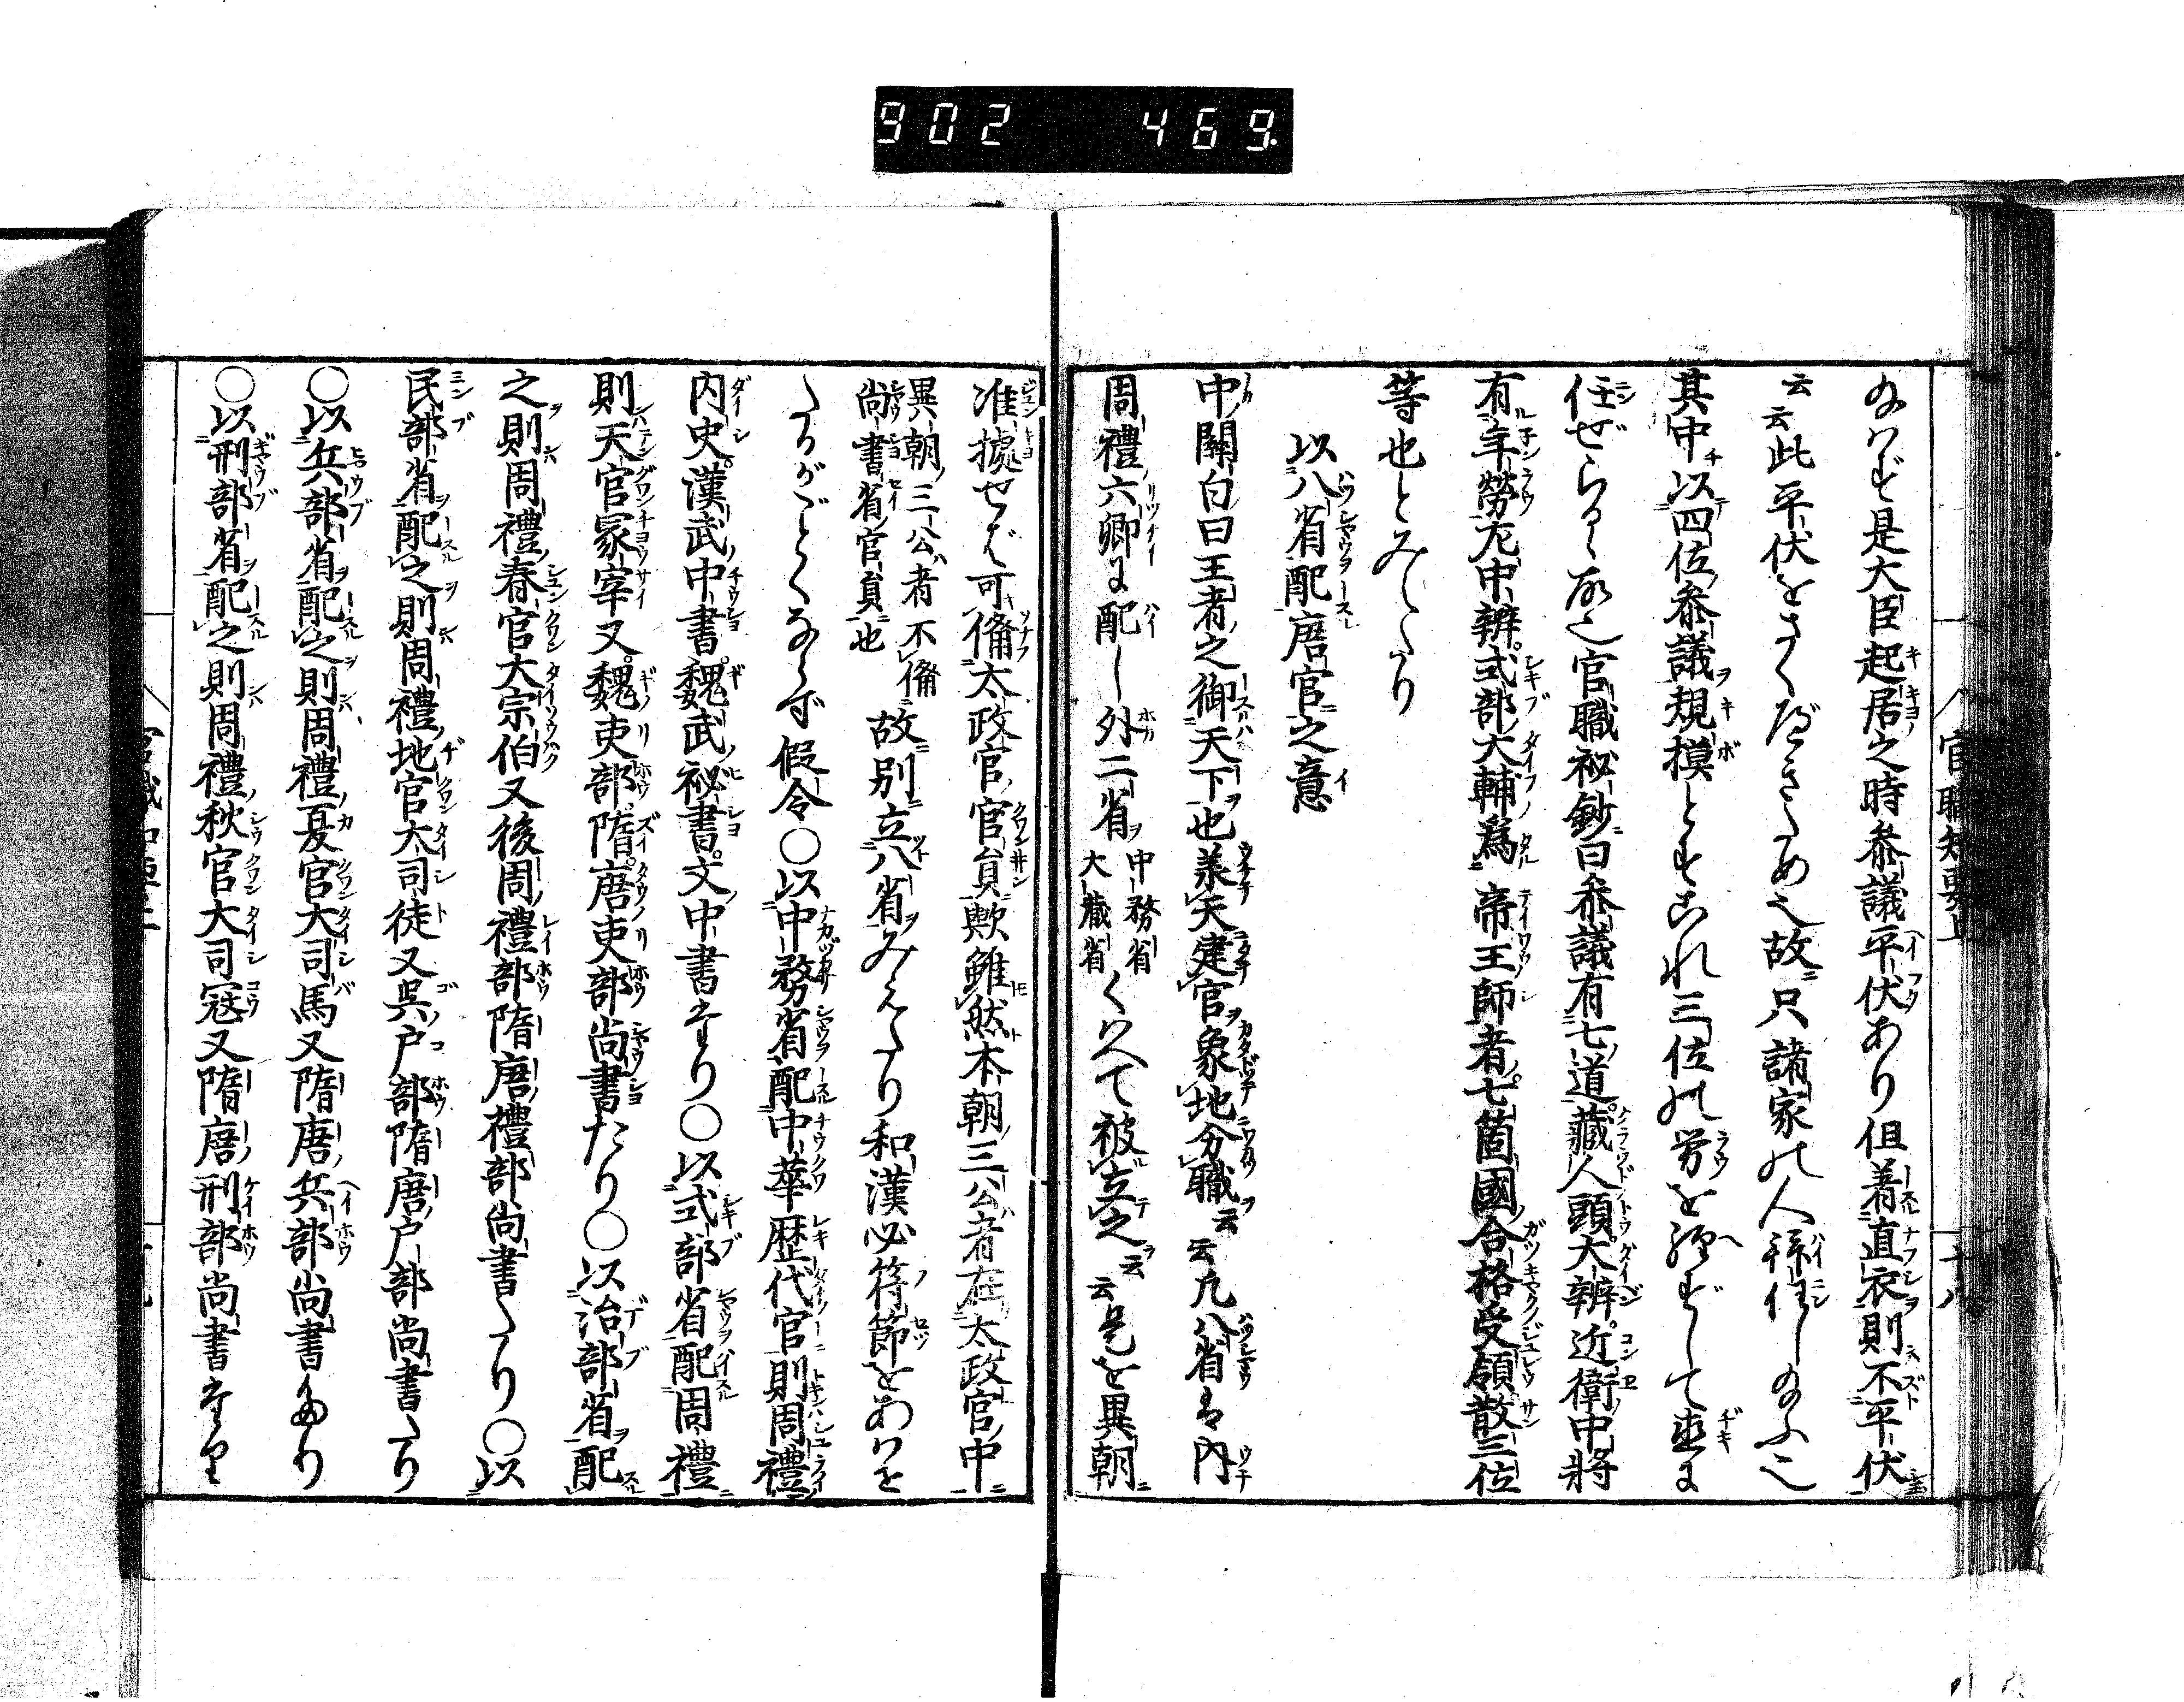 902 469.
給はず是大臣起居之時参議平伏あり但着直衣則不平伏
云云此平伏をさくべきため也故只諸家の人辞任し給ふ也
其中以四位参議規摸とすおれ三位の労を経ずして直に
任ぜらるゝ故也官職秘鈔曰参議有七道藏人頭大辨近衛中將
有年勞尤中辨式部大輔為 帝王師者七箇國合格受領散三位
等也とみへたり
以八省配唐官之意
中關白曰王者之御天下也義天建官象地分職云云凡八省は内
周禮六卿に配し外二省中務省大藏省くはへて被立之云云是を異朝
官職知要上
十八
准據せば可備太政官官員歟雖然本朝三公者在太政官中
異朝三公者不備尚書省官員也故別立八省みえたり和漢必符節をあはを
たるがごとくならず假令○以中務省配中華歴代官則周禮
内史漢武中書魏武秘書文中書なり○以式部省配周禮
則天官冢宰又魏吏部隋唐吏部尚書たり○以治部省配
之則周禮春官大宗伯又後周禮部隋唐禮部尚書たり○以
民部省配之則周禮地官大司徒又呉戸部隋唐戸部尚書たり
○以兵部省配之則周禮夏官大司馬又隋唐兵部尚書なり
○以刑部省配之則周禮秋官大司寇又隋唐刑部尚書なり